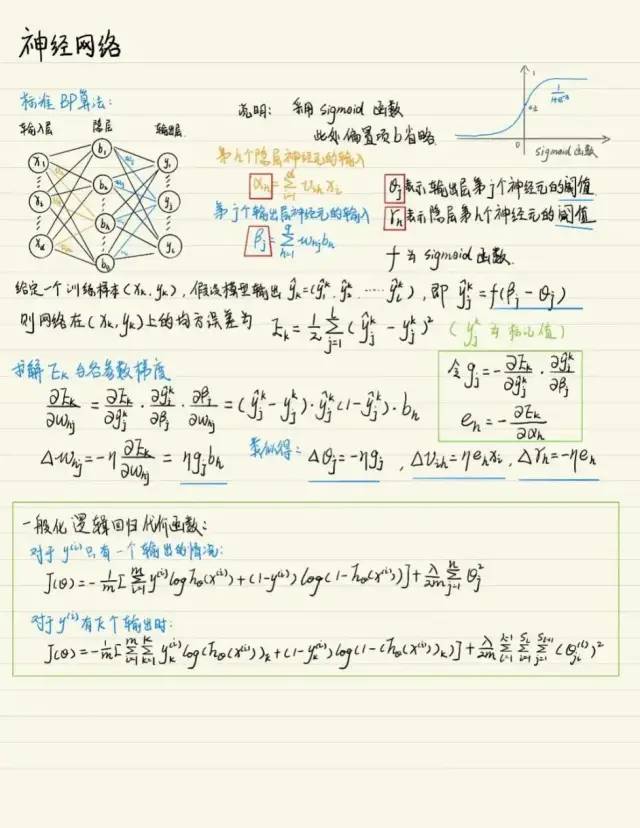 神经网络
标准BP算法:
输入层 隐层 输出层
x₁ b₁ y₁
xᵢ b₂ yⱼ
b_h
x_d b_q y_l
说明: 采用 sigmoid 函数
此处偏置项b省略.
1
0.5
0
1/(1+e⁻ˣ)
sigmoid 函数
第h个隐层神经元的输入
α_h = Σ_{i=1}^{d} v_{ih} x_i
第j个输出层神经元的输入
β_j = Σ_{h=1}^{q} w_{hj} b_h
θ_j 表示输出层第j个神经元的阈值
γ_h 表示隐层第h个神经元的阈值
f 为 sigmoid 函数.
给定一个训练样本(x_k, y_k), 假设模型输出 ŷ_k=(ŷ_1^k, ŷ_2^k, ……ŷ_l^k), 即 ŷ_j^k = f(β_j - θ_j)
则网络在(x_k, y_k)上的均方误差为 E_k = 1/2 Σ_{j=1}^{l} (ŷ_j^k - y_j^k)² (y_j^k 为标记值)
求解 E_k 的各参数梯度
∂E_k/∂w_{hj} = ∂E_k/∂ŷ_j^k · ∂ŷ_j^k/∂β_j · ∂β_j/∂w_{hj} = (ŷ_j^k - y_j^k) · ŷ_j^k (1-ŷ_j^k) · b_h
令 g_j = - ∂E_k/∂ŷ_j^k · ∂ŷ_j^k/∂β_j
e_h = - ∂E_k/∂α_h
Δw_{hj} = -η ∂E_k/∂w_{hj} = ηg_j b_h 类似得: Δθ_j = -ηg_j , Δv_{ih} = ηe_h x_i , Δγ_h = -ηe_h
一般化逻辑回归代价函数:
对于 y⁽ⁱ⁾ 只有一个输出的情况:
J(θ) = - 1/m [Σ_{i=1}^{m} y⁽ⁱ⁾ log h_θ(x⁽ⁱ⁾) + (1-y⁽ⁱ⁾) log(1-h_θ(x⁽ⁱ⁾))] + λ/2m Σ_{j=1}^{n} θ_j²
对于 y⁽ⁱ⁾ 有K个输出时:
J(θ) = - 1/m [Σ_{i=1}^{m} Σ_{k=1}^{K} y_k⁽ⁱ⁾ log(h_θ(x⁽ⁱ⁾))_k + (1-y_k⁽ⁱ⁾) log(1-(h_θ(x⁽ⁱ⁾))_k)] + λ/2m Σ_{l=1}^{L-1} Σ_{i=1}^{S_l} Σ_{j=1}^{S_{l+1}} (θ_{ji}⁽ˡ⁾)²